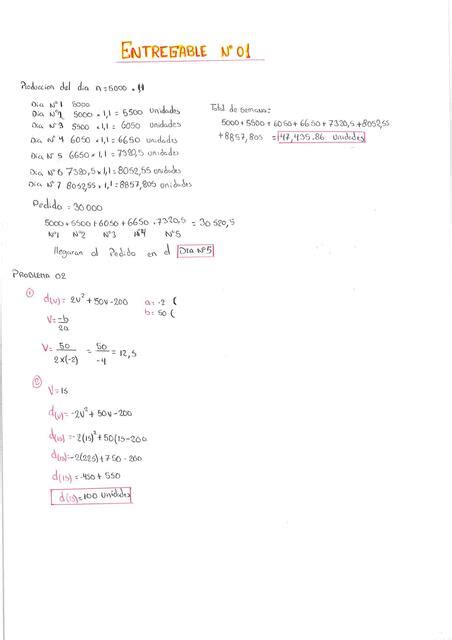 ENTREGABLE N°01
Produccion del dia n=5000 . 11
Dia N°1 5000
Dia N°2 5000 × 1,1 = 5500 unidades
Dia N°3 5500 × 1,1 = 6050 unidades
Dia N°4 6050 × 1,1 = 6650 unidades
Dia N°5 6650 × 1,1 = 7320,5 unidades
Dia N°6 7320,5 × 1,1 = 8052,55 unidades
Dia N°7 8052,55 × 1,1 = 8857,805 unidades
Total de semana:
5000 + 5500 + 6050 + 6650 + 7320,5 + 8052,55
+ 8857,805 = 47,435.86 unidades
Pedido = 30 000
5000 + 5500 + 6050 + 6650 + 7320,5 = 30 520,5
N°1 N°2 N°3 N°4 N°5
llegaran al Pedido en el DIA N°5
PROBLEMA 02
① d(v) = 2v² + 50v - 200 a = -2 (
V = -b/2a b = 50 (
V = 50/2×(-2) = 50/-4 = 12,5
② V = 15
d(v) = -2v² + 50v - 200
d(15) = -2(15)² + 50(15 - 200
d(15) = -2(225) + 750 - 200
d(15) = -450 + 550
d(15) = 100 unidades